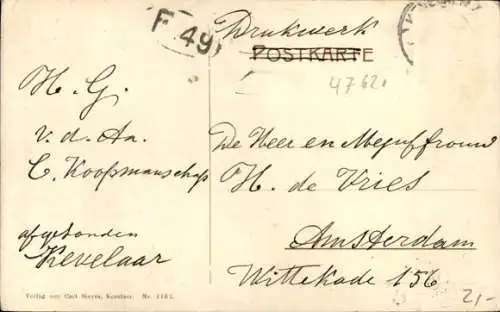 F 49
Drukwerk
POSTKARTE
4762.
H. G.
v. d. Aa.
C. Koopmanschap
afgezonden
Kevelaar
De Heer en Mejuffrouw
H. de Vries
Amsterdam
Wittekade 156
Verlag von Carl Nr.
2,-